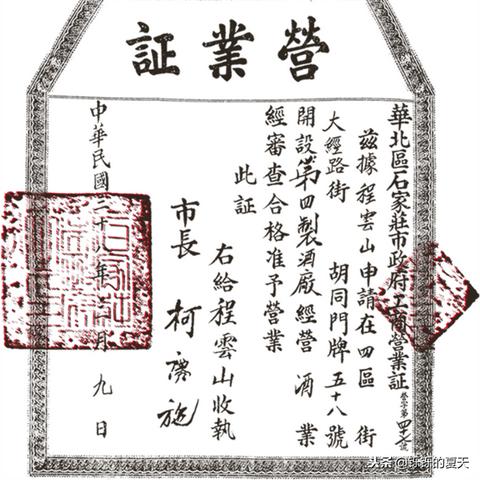 營業証
華北區石家莊市政府工商營業証
營字第
茲據程雲山申請在四區 街
大經路街 胡同門牌五十八號
開設第四製酒廠經營 酒 業
經審查合格准予營業
此証
右給程雲山收執
市長 柯慶施
中華民國三十八年三月九日
头条@烁烁的夏天